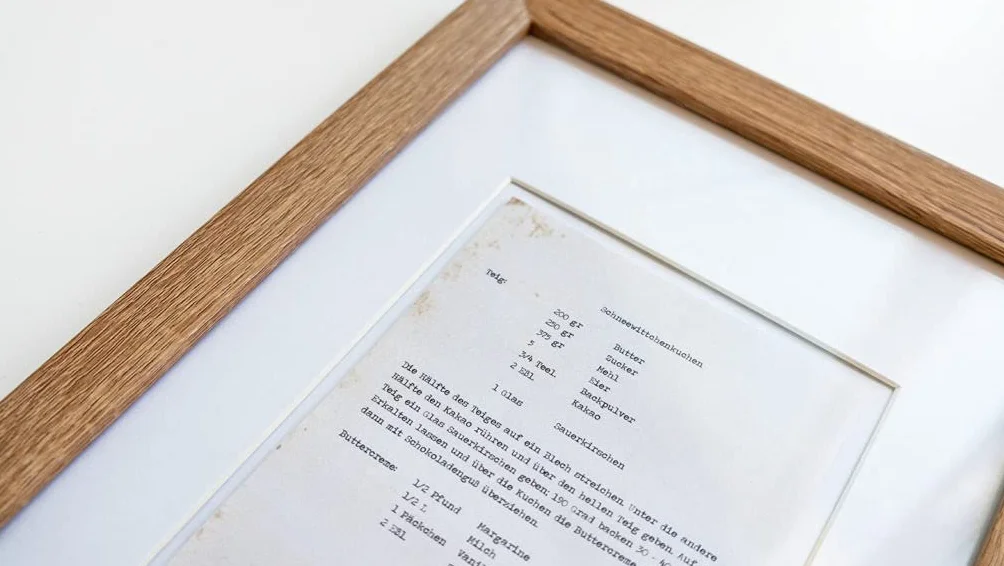 Schneewittchenkuchen
Teig:
200 gr Butter
250 gr Zucker
375 gr Mehl
5 Eier
3/4 Teel. Backpulver
2 Eßl Kakao
1 Glas Sauerkirschen
Die Hälfte des Teiges auf ein Blech streichen. Unter die andere
Hälfte den Kakao rühren und über den hellen Teig geben. Auf
Teig ein Glas Sauerkirschen geben, 190 Grad backen 30 - 40
Erkalten lassen und über die Kuchen die Buttercreme
dann mit Schokoladenguß überziehen.
Buttercreme:
1/2 Pfund Margarine
1/2 L Milch
1 Päckchen
2 Eßl